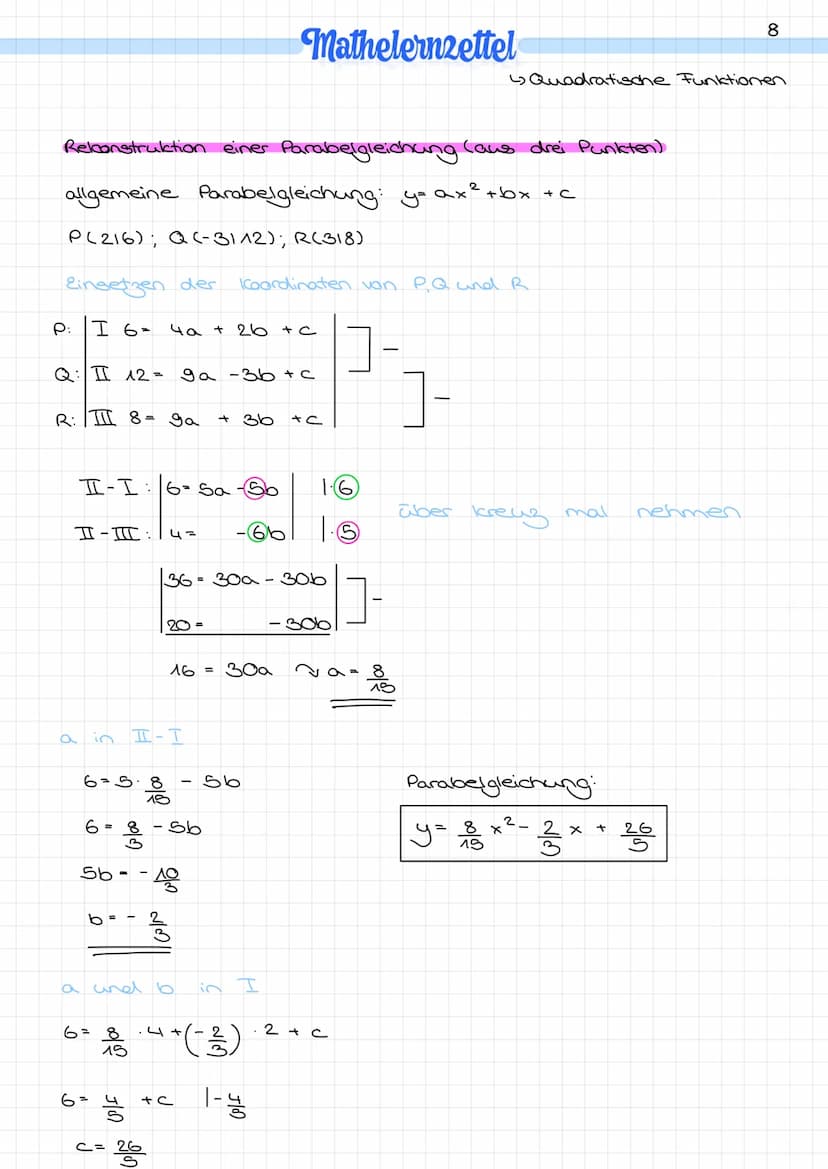 8
Mathelernzettel
↳ Quadratische Funktionen
Rekonstruktion einer Parabelgleichung (aus drei Punkten)
allgemeine Parabelgleichung: y = ax² + bx + c
P(2|6); Q(-3|12); R(3|8)
Einsetzen der Koordinaten von P,Q und R
P: | I 6 = 4a + 2b + c | ] −
Q: | II 12 = 9a - 3b + c | ] −
R: | III 8 = 9a + 3b + c |
II - I : | 6 = 5a - 5b | | · 6
über kreuz mal nehmen
II - III : | 4 = - 6b | | · 5
| 36 = 30a - 30b | ] −
| 20 = - 30b |
16 = 30a ↷ a = 8/15
a in II - I
6 = 5 · 8/15 - 5b
6 = 8/3 - 5b
5b = - 10/3
b = - 2/3
Parabelgleichung:
y = 8/15 x² - 2/3 x + 26/5
a und b in I
6 = 8/15 · 4 + (- 2/3) · 2 + c
6 = 4/5 + c | - 4/5
c = 26/5